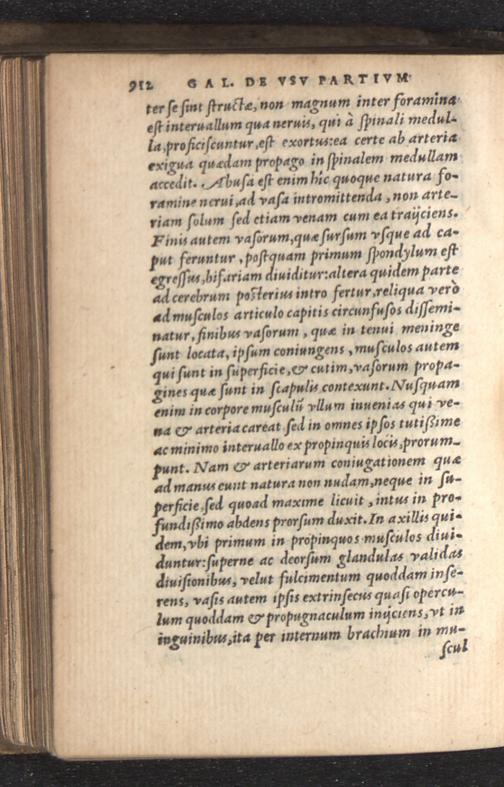 912 GAL. DE VSV PARTIVM
ter se sint structæ, non magnum inter foramina
est interuallum qua neruis, qui à spinali medul-
la, proficiscuntur, est exortus: ea certe ab arteria
exigua quædam propago in spinalem medullam
accedit. Abusa est enim hîc quoque natura fo-
ramine nerui, ad vasa intromittenda, non arte-
riam solum sed etiam venam cum ea traijciens.
Finis autem vasorum, quæ sursum vsque ad ca-
put feruntur, postquam primum spondylum est
egressus, bifariam diuiditur: altera quidem parte
ad cerebrum posterius intro fertur, reliqua verò
ad musculos articulo capitis circunfusos dissemi-
natur, finibus vasorum, quæ in tenui meninge
sunt locata, ipsum coniungens, musculos autem
qui sunt in superficie, & cutim, vasorum propa-
gines quæ sunt in scapulis contexunt. Nusquam
enim in corpore musculũ vllum inuenias qui ve-
na & arteria careat sed in omnes ipsos tutißime
ac minimo interuallo ex propinquis locis, prorum-
punt. Nam & arteriarum coniugationem quæ
ad manus eunt natura non nudam, neque in su-
perficie, sed quoad maxime licuit, intus in pro-
fundißimo abdens prorsum duxit. In axillis qui-
dem, vbi primum in propinquos musculos diui-
duntur: superne ac deorsum glandulas validas
diuisionibus, velut fulcimentum quoddam inse-
rens, vasis autem ipsis extrinsecus quasi opercu-
lum quoddam & propugnaculum inijciens, vt in
inguinibus, ita per internum brachium in mu-
scul